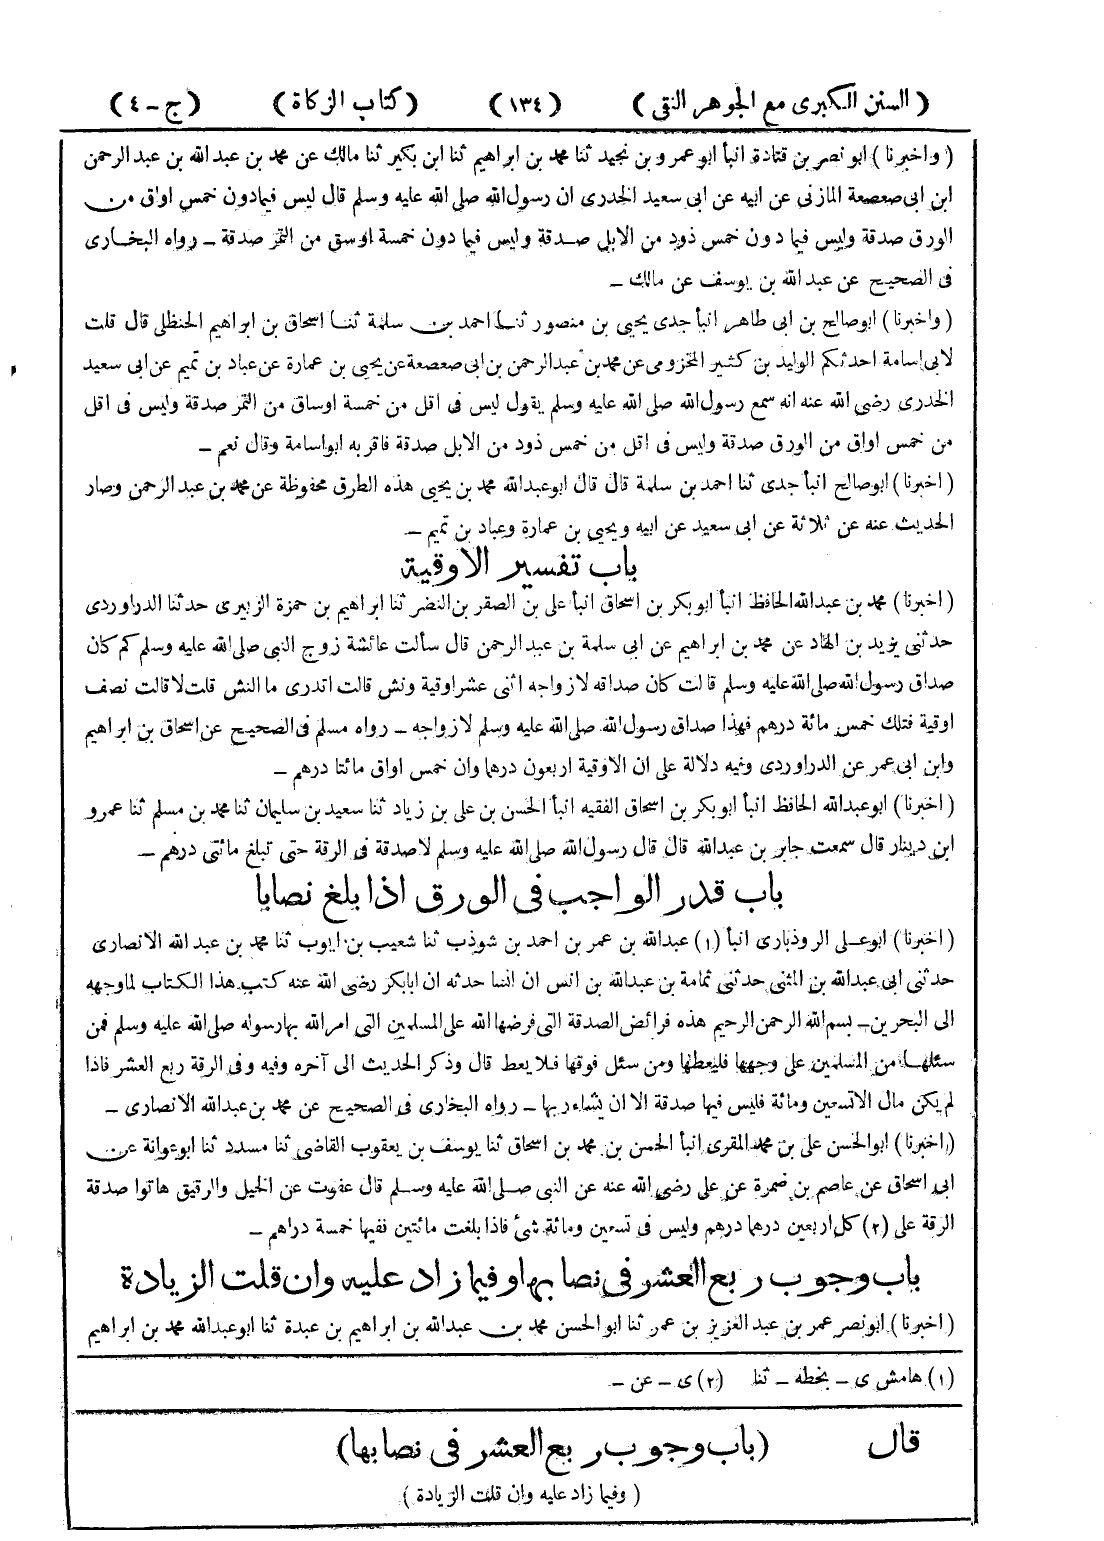 ( السنن الكبرى مع الجوهر النقى ) ( ١٣٤ ) ( كتاب الزكاة ) ( ج - ٤ )
( واخبرنا ) ابو نصر بن قتادة انبأ ابو عمرو بن نجيد ثنا محمد بن ابراهيم ثنا ابن بكير ثنا مالك عن محمد بن عبد الله بن عبد الرحمن
ابن ابى صعصعة المازنى عن ابيه عن ابى سعيد الخدرى ان رسول الله صلى الله عليه وسلم قال ليس فيما دون خمس اواق من
الورق صدقة وليس فيما دون خمس ذود من الابل صدقة وليس فيما دون خمسة اوسق من التمر صدقة - رواه البخارى
فى الصحيح عن عبد الله بن يوسف عن مالك -
( واخبرنا ) ابوصالح بن ابى طاهر انبأ جدى يحيى بن منصور ثنا احمد بن سلمة ثنا اسحاق بن ابراهيم الحنظلى قال قلت
لابى اسامة احدثكم الوليد بن كثير المخزومى عن محمد بن عبد الرحمن بن ابى صعصعة عن يحيى بن عمارة عن عباد بن تميم عن ابى سعيد
الخدرى رضى الله عنه انه سمع رسول الله صلى الله عليه وسلم يقول ليس فى اقل من خمسة اوساق من التمر صدقة وليس فى اقل
من خمس اواق من الورق صدقة وليس فى اقل من خمس ذود من الابل صدقة فاقر به ابواسامة وقال نعم -
( اخبرنا ) ابوصالح انبأ جدى ثنا احمد بن سلمة قال قال ابوعبدالله محمد بن يحيى هذه الطرق محفوظة عن محمد بن عبد الرحمن وصار
الحديث عنه عن ثلاثة عن ابى سعيد عن ابيه ويحيى بن عمارة وعباد بن تميم -
باب تفسير الاوقية
( اخبرنا ) محمد بن عبدالله الحافظ انبأ ابوبكر بن اسحاق انبأ على بن الصقر بن النضر ثنا ابراهيم بن حمزة الزبيرى حدثنا الدراوردى
حدثنى يزيد بن الهاد عن محمد بن ابراهيم عن ابى سلمة بن عبد الرحمن قال سألت عائشة زوج النبى صلى الله عليه وسلم كم كان
صداق رسول الله صلى الله عليه وسلم قالت كان صداقه لازواجه اثنى عشر اوقية ونش قالت اتدرى ما النش قلت لا قالت نصف
اوقية فتلك خمس مائة درهم فهذا صداق رسول الله صلى الله عليه وسلم لازواجه - رواه مسلم فى الصحيح عن اسحاق بن ابراهيم
وابن ابى عمر عن الدراوردى وفيه دلالة على ان الاوقية اربعون درهما وان خمس اواق مائتا درهم -
( اخبرنا ) ابوعبدالله الحافظ انبأ ابوبكر بن اسحاق الفقيه انبأ الحسن بن على بن زياد ثنا سعيد بن سليمان ثنا محمد بن مسلم ثنا عمرو
ابن دينار قال سمعت جابر بن عبدالله قال قال رسول الله صلى الله عليه وسلم لاصدقة فى الرقة حتى تبلغ مائتى درهم -
باب قدر الواجب فى الورق اذا بلغ نصابا
( اخبرنا ) ابوعلى الروذبارى انبأ (١) عبدالله بن عمر بن احمد بن شوذب ثنا شعيب بن ايوب ثنا محمد بن عبد الله الانصارى
حدثنى ابى عبدالله بن المثنى حدثنى ثمامة بن عبدالله بن انس ان انسا حدثه ان ابابكر رضى الله عنه كتب هذا الكتاب لما وجهه
الى البحرين - بسم الله الرحمن الرحيم هذه فرائض الصدقة التى فرضها الله على المسلمين التى امر الله بها رسوله صلى الله عليه وسلم فمن
سئلها من المسلمين على وجهها فليعطها ومن سئل فوقها فلا يعط قال وذكر الحديث الى آخره وفيه وفى الرقة ربع العشر فاذا
لم يكن مال الا تسعين ومائة فليس فيها صدقة الا ان يشاء ربها - رواه البخارى فى الصحيح عن محمد بن عبدالله الانصارى -
( اخبرنا ) ابوالحسن على بن محمد المقرى انبأ الحسن بن محمد بن اسحاق ثنا يوسف بن يعقوب القاضى ثنا مسدد ثنا ابوعوانة عن
ابى اسحاق عن عاصم بن ضمرة عن على رضى الله عنه عن النبى صلى الله عليه وسلم قال عفوت عن الخيل والرقيق هاتوا صدقة
الرقة على (٢) كل اربعين درهما درهم وليس فى تسعين ومائة شئ فاذا بلغت مائتين ففيها خمسة دراهم -
باب وجوب ربع العشر فى نصابها وفيما زاد عليه وان قلت الزيادة
( اخبرنا ) ابونصر عمر بن عبد العزيز بن عمر ثنا ابوالحسن محمد بن عبدالله بن ابراهيم بن عبدة ثنا ابوعبدالله محمد بن ابراهيم
(١) هامش ى - بخطه - ثنا (٢) ى - عن -
قال (باب وجوب ربع العشر فى نصابها)
( وفيما زاد عليه وان قلت الزيادة )